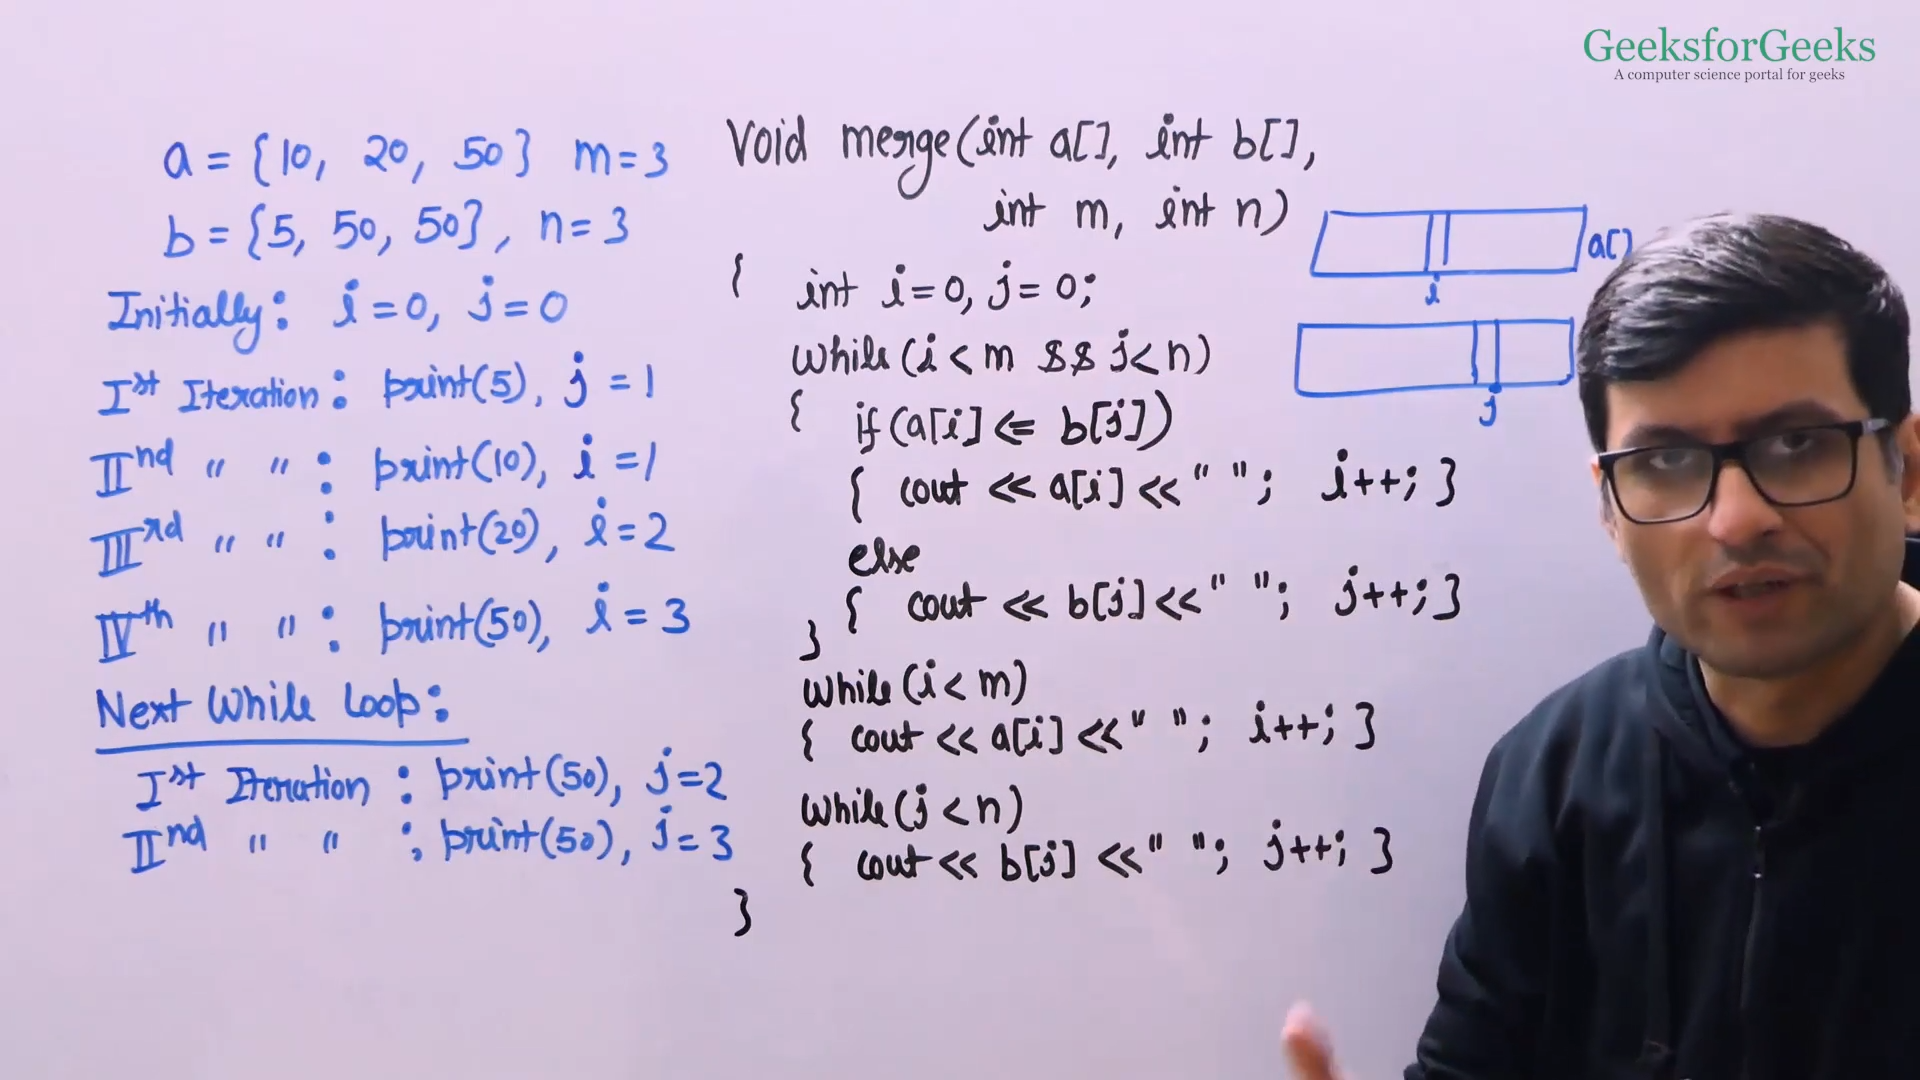 GeeksforGeeks
A computer science portal for geeks
a = {10, 20, 50} m=3
b = {5, 50, 50}, n=3
Initially: i=0, j=0
Ist Iteration: print(5), j=1
IInd " " : print(10), i=1
IIIrd " " : print(20), i=2
IVth " " : print(50), i=3
Next While Loop:
Ist Iteration : print(50), j=2
IInd " " : print(50), j=3
Void merge(int a[], int b[],
int m, int n)
{ int i=0, j=0;
While(i<m && j<n)
{ if(a[i] <= b[j])
{ cout << a[i] << " "; i++; }
else
{ cout << b[j] << " "; j++; }
}
while(i<m)
{ cout << a[i] << " "; i++; }
while(j<n)
{ cout << b[j] << " "; j++; }
}
a[]
i
j